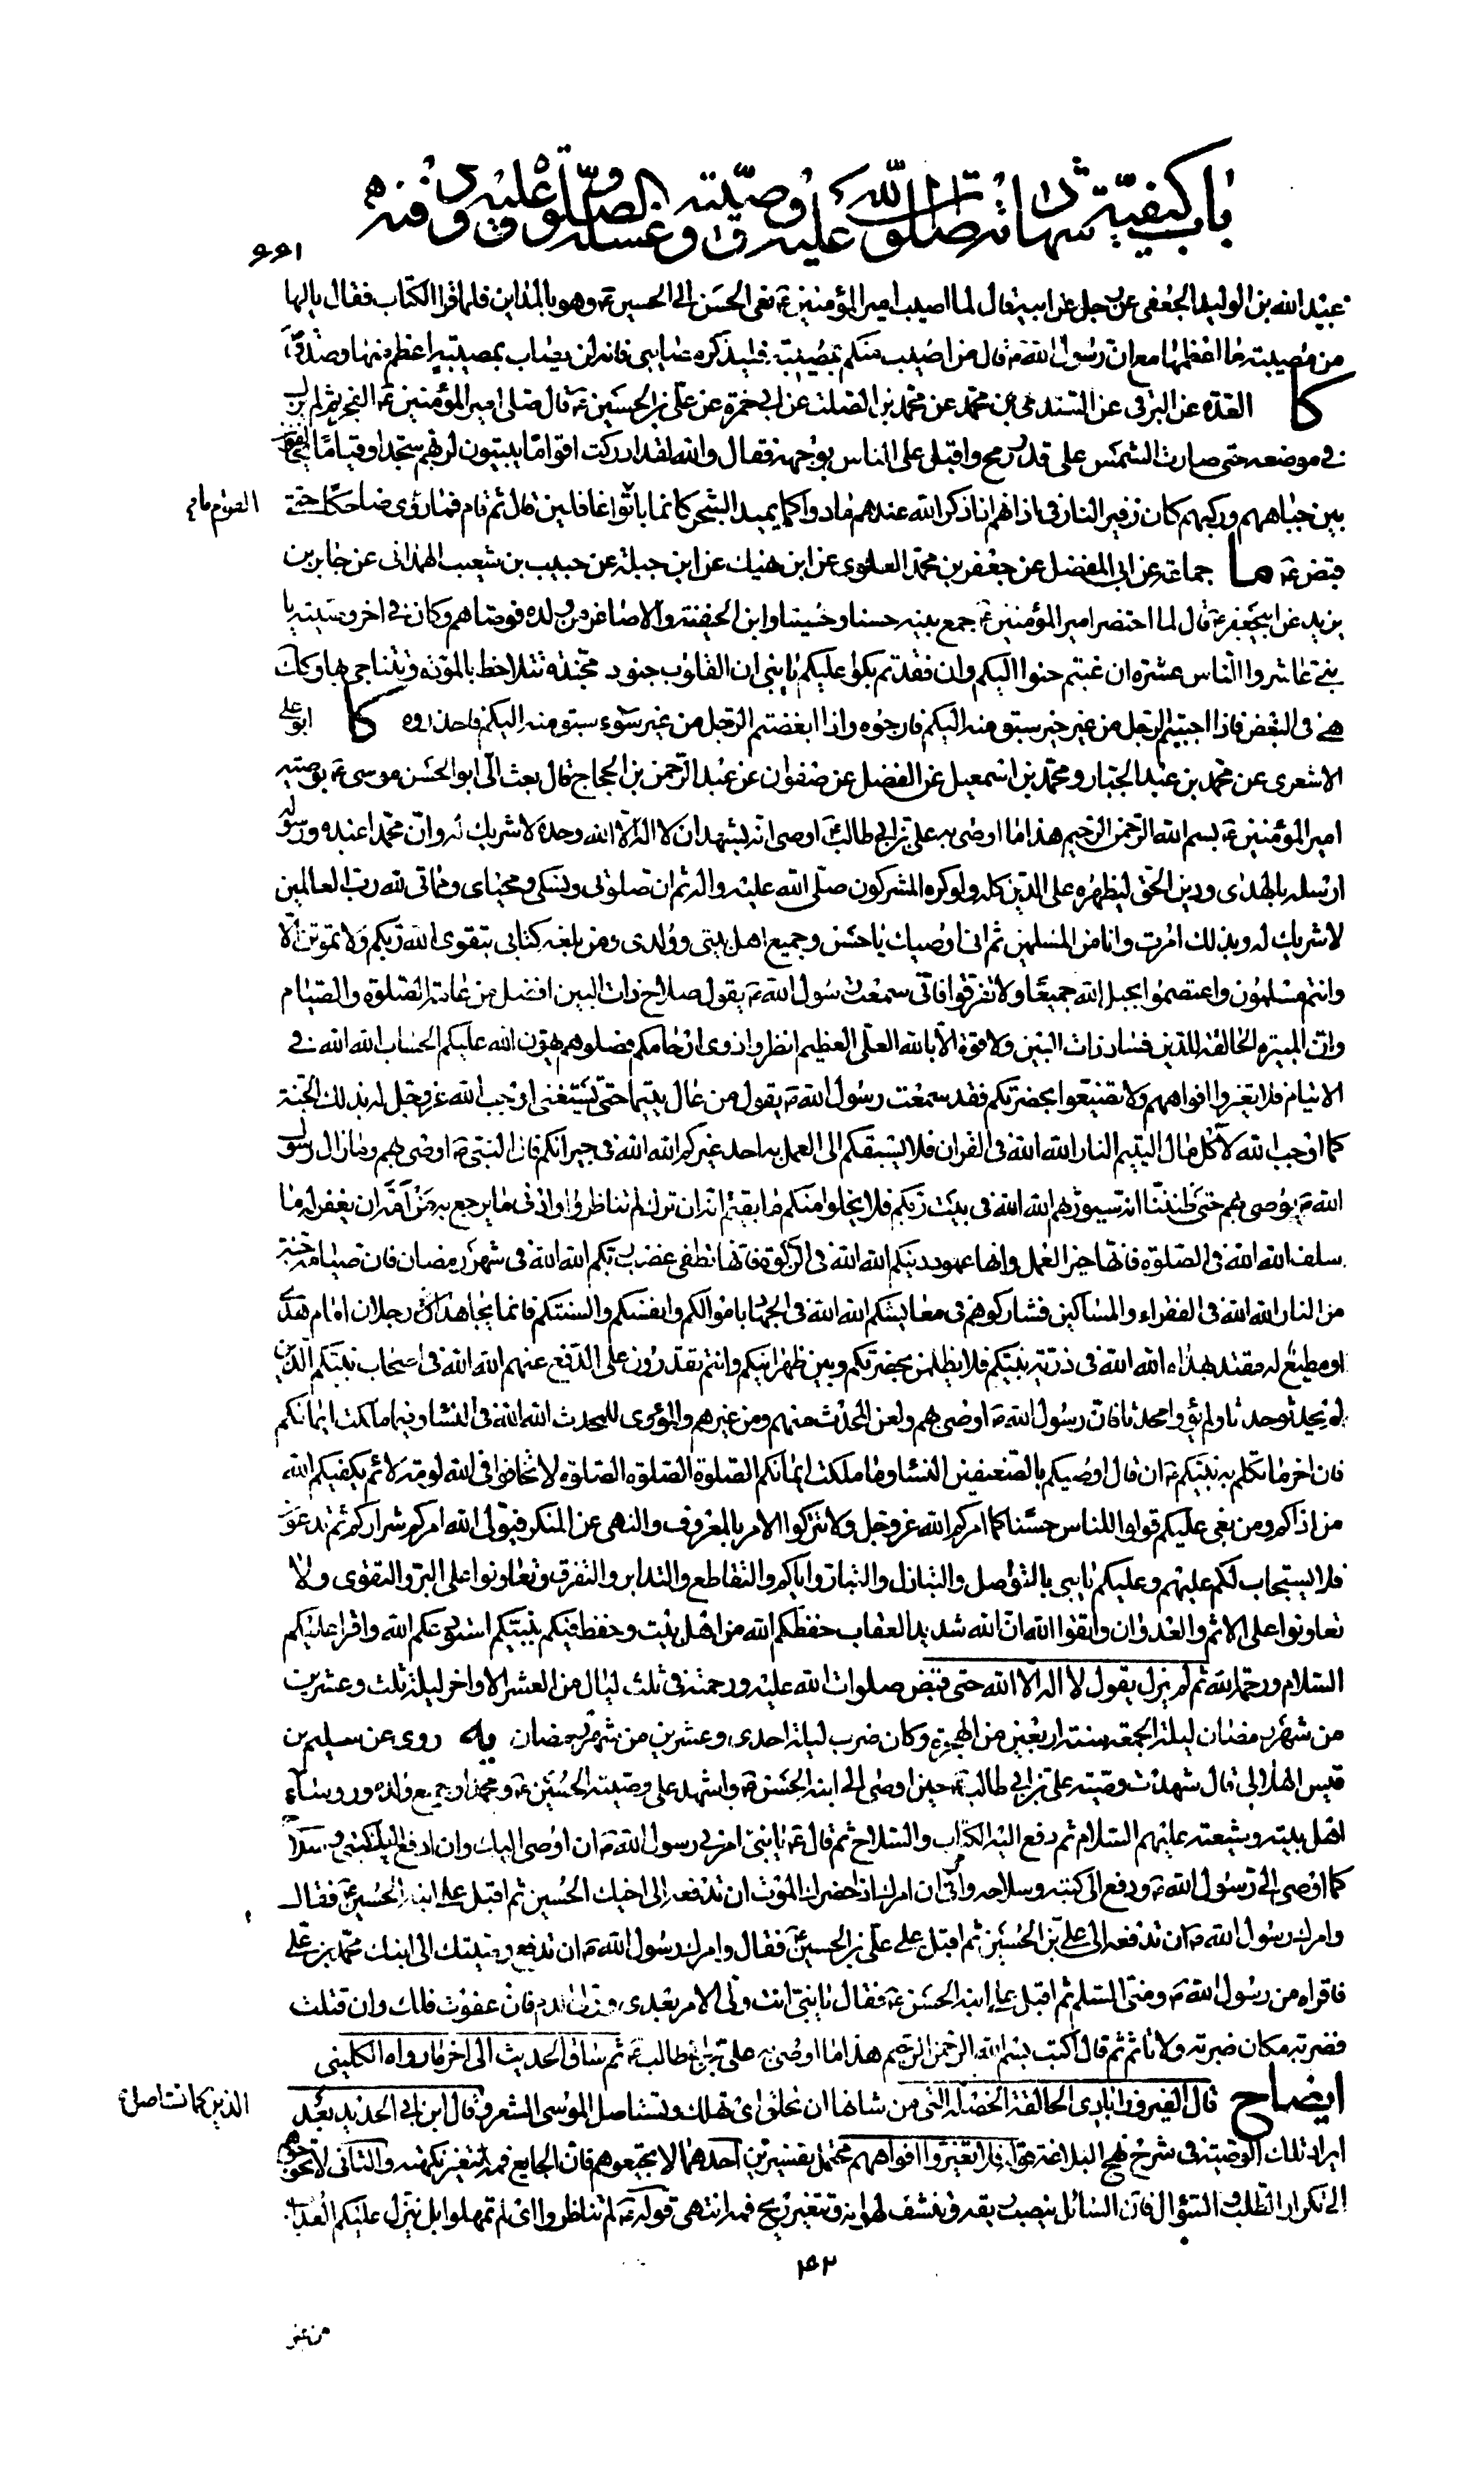 باب كيفيّة شهادته صلوات الله عليه ووصيّته وغسله والصلوة عليه ودفنه
٦٦١
عبيد الله بن الوليد الجعفى عن رجل عن ابيه قال لما اصيب امير المؤمنين ع نعى الحسن الى الحسين ع وهو بالمداين فلما قرا الكتاب فقال يا لها
من مصيبة ما اعظمها مع ان رسول الله ص قال من اصيب منكم بمصيبة فليذكر مصابى فانه لن يصاب بمصيبة اعظم منها وصدق ص
كا العدة عن البرقى عن السندى بن محمد عن محمد بن الصلت عن ابى حمزة عن على بن الحسين ع قال صلى امير المؤمنين ع الفجر ثم لم يزل
فى موضعه حتى صارت الشمس على قدر رمح واقبل على الناس بوجهه فقال والله لقد ادركت اقواما يبيتون لربهم سجدا وقياما يخالفون
بين جباههم وركبهم كان زفير النار فى اذانهم اذا ذكر الله عندهم مادوا كما يميد الشجر كانما باتوا غافلين قال ثم قام فما رؤى ضاحكا حتى
قبض ع ما جماعة عن ابى المفضل عن جعفر بن محمد العلوى عن ابن نهيك عن ابن جبلة عن حبيب بن شعيب الهمدانى عن جابر بن
يزيد عن ابى جعفر ع قال لما احتضر امير المؤمنين ع جمع بنيه حسنا وحسينا وابن الحنفية والاصاغر من ولده فوصاهم وكان فى اخر وصيته يا
بنى عاشروا الناس عشرة ان غبتم حنوا اليكم وان فقدتم بكوا عليكم يا بنى ان القلوب جنود مجندة تتلاحظ بالمودة وتتناجى بها وكذلك
هى فى البغض فاذا احببتم الرجل من غير خير سبق منه اليكم فارجوه واذا ابغضتم الرجل من غير سوء سبق منه اليكم فاحذروه كا ابو على
الاشعرى عن محمد بن عبد الجبار ومحمد بن اسمعيل عن الفضل عن صفوان عن عبد الرحمن بن الحجاج قال بعث الى ابو الحسن موسى ع بوصية
امير المؤمنين ع بسم الله الرحمن الرحيم هذا ما اوصى به على بن ابى طالب ع اوصى انه يشهد ان لا اله الا الله وحده لا شريك له وان محمدا عبده ورسوله
ارسله بالهدى ودين الحق ليظهره على الدين كله ولو كره المشركون صلى الله عليه واله ثم ان صلوتى ونسكى ومحياى ومماتى لله رب العالمين
لا شريك له وبذلك امرت وانا من المسلمين ثم انى اوصيك يا حسن وجميع اهل بيتى وولدى ومن بلغه كتابى بتقوى الله ربكم ولا تموتن الا
وانتم مسلمون واعتصموا بحبل الله جميعا ولا تفرقوا فانى سمعت رسول الله ص يقول صلاح ذات البين افضل من عامة الصلوة والصيام
وان المبيرة الحالقة للدين فساد ذات البين ولا قوة الا بالله العلى العظيم انظروا ذوى ارحامكم فصلوهم يهون الله عليكم الحساب الله الله فى
الايتام فلا تغيروا افواههم ولا تضيعوا بحضرتكم فقد سمعت رسول الله ص يقول من عال يتيما حتى يستغنى اوجب الله عز وجل له بذلك الجنة
كما اوجب الله لاكل مال اليتيم النار الله الله فى القران فلا يسبقكم الى العمل به احد غيركم الله الله فى جيرانكم فان النبى ص اوصى بهم وما زال رسول
الله ص يوصى بهم حتى ظننا انه سيورثهم الله الله فى بيت ربكم فلا يخلوا منكم ما بقيتم انه ان ترك لم تناظروا وادنى ما يرجع به من امه ان يغفر له ما
سلف الله الله فى الصلوة فانها خير العمل وانها عمود دينكم الله الله فى الزكوة فانها تطفى غضب ربكم الله الله فى شهر رمضان فان صيامه جنة
من النار الله الله فى الفقراء والمساكين فشاركوهم فى معايشكم الله الله فى الجهاد باموالكم وانفسكم والسنتكم فانما يجاهد رجلان امام هدى
او مطيع له مقتد بهداه الله الله فى ذرية نبيكم فلا يظلمن بحضرتكم وبين ظهرانيكم وانتم تقدرون على الدفع عنهم الله الله فى اصحاب نبيكم الذين
لم يحدثوا حدثا ولم يؤوا محدثا فان رسول الله ص اوصى بهم ولعن المحدث منهم ومن غيرهم والمؤوى للمحدث الله الله فى النساء وفيما ملكت ايمانكم
فان اخر ما تكلم به نبيكم ص ان قال اوصيكم بالضعيفين النساء وما ملكت ايمانكم الصلوة الصلوة الصلوة لا تخافوا فى الله لومة لائم يكفيكم الله
من اذاكم ومن بغى عليكم قولوا للناس حسنا كما امركم الله عز وجل ولا تتركوا الامر بالمعروف والنهى عن المنكر فيولى الله امركم شراركم ثم تدعون
فلا يستجاب لكم عليهم وعليكم يا بنى بالتواصل والتباذل والتبار واياكم والتقاطع والتدابر والتفرق وتعاونوا على البر والتقوى ولا
تعاونوا على الاثم والعدوان واتقوا الله ان الله شديد العقاب حفظكم الله من اهل بيت وحفظ فيكم نبيكم استودعكم الله واقرا عليكم
السلام ورحمة الله ثم لم يزل يقول لا اله الا الله حتى قبض صلوات الله عليه ورحمته فى ثلث ليال من العشر الاواخر ليلة ثلث وعشرين
من شهر رمضان ليلة الجمعة سنة اربعين من الهجرة وكان ضرب ليلة احدى وعشرين من شهر رمضان يه روى عن سليم بن
قيس الهلالى قال شهدت وصية على بن ابى طالب ع حين اوصى الى ابنه الحسن ع واشهد على وصيته الحسين ع ومحمدا وجميع ولده ورؤساء
اهل بيته وشيعته عليهم السلام ثم دفع اليه الكتاب والسلاح ثم قال ع يا بنى امرنى رسول الله ص ان اوصى اليك وان ادفع اليك كتبى وسلاحى
كما اوصى الى رسول الله ص ودفع الى كتبه وسلاحه وامرنى ان امرك اذا حضرك الموت ان تدفعه الى اخيك الحسين ثم اقبل على ابنه الحسين ع فقال
وامرك رسول الله ص ان تدفعه الى على بن الحسين ثم اقبل على على بن الحسين ع فقال وامرك رسول الله ص ان تدفع وصيتك الى ابنك محمد بن على
فاقراه من رسول الله ص ومنى السلم ثم اقبل على ابنه الحسن ع فقال يا بنى انت ولى الامر بعدى وولى الدم فان عفوت فلك وان قتلت
فضربة مكان ضربة ولا تاثم ثم قال اكتب بسم الله الرحمن الرحيم هذا ما اوصى به على بن ابى طالب ع ثم ساق الحديث الى اخر ما رواه الكلينى
ايضاح قال الفيروزابادى الحالقة الخصلة التى من شانها ان تحلق اى تهلك وتستاصل الدين كما تستاصل الموسى الشعر وقال ابن ابى الحديد بعد
ايراد تلك الوصية فى شرح نهج البلاغة قوله فلا تغيروا افواههم يحتمل تفسيرين احدهما لا تجيعوهم فان الجايع فمه تتغير نكهته والثانى لا تحوجوهم
الى تكرار الطلب والسؤال فان السائل ينضب ريقه وتنشف لهواته وتتغير ريح فمه انتهى قوله ع لم تناظروا اى لم تمهلوا بل ينزل عليكم العذاب
٤٢
من غير